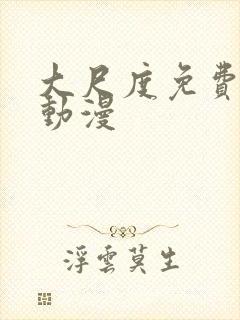 大尺度免費
動漫
浮雲莫生